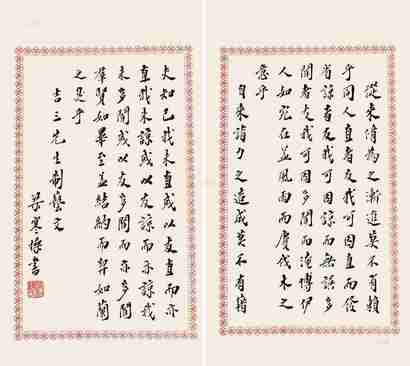 從來脩為之漸進莫不有賴
乎同人直者友我可因直而
省諒者友我可因諒而無諒多
聞者友我可因多聞而淹博伊
人如宛在並風雨而賡伐木之
意乎
自來詣力之造成莫不有籍
夫知己我未直或以友直而亦
直我未諒或以友諒而亦諒我
未多聞或以友多聞而亦多聞
羣賢如畢至並結納而契如蘭
之是乎
吉三先生制藝文
梁寒操書